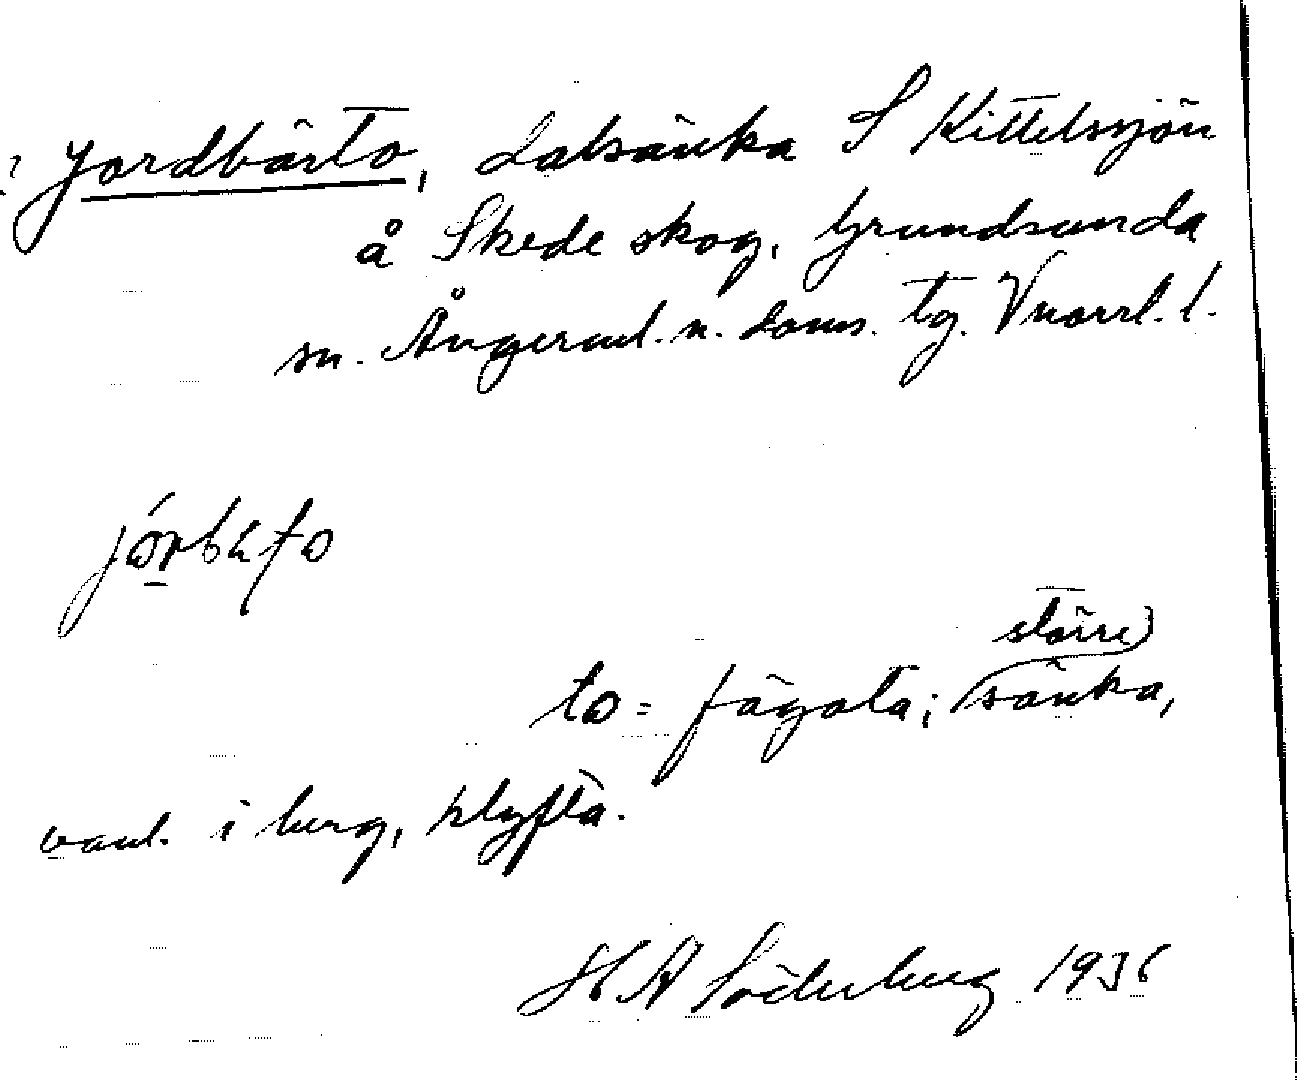 Jordbärto, dalsänka S Kittelsjön
å Skede skog, Grundsunda
sn. Ångerml. n. doms. tg. Vnorrl. l.
to = fägata; större
sänka,
vanl. i berg, klyfta.
H A Söderberg 1936